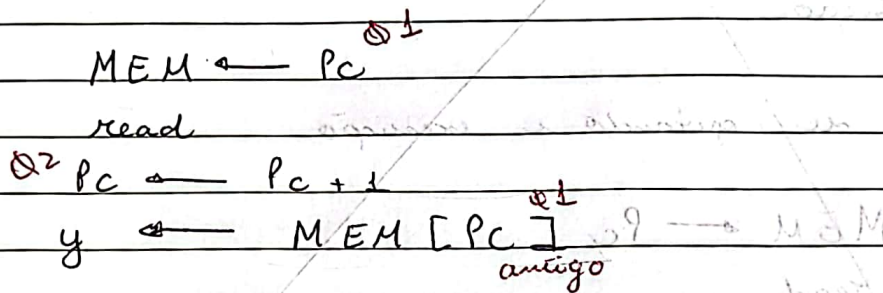 MEM ← PC Q1
read
Q2 PC ← PC + 1
y ← MEM [PC] Q1
antigo